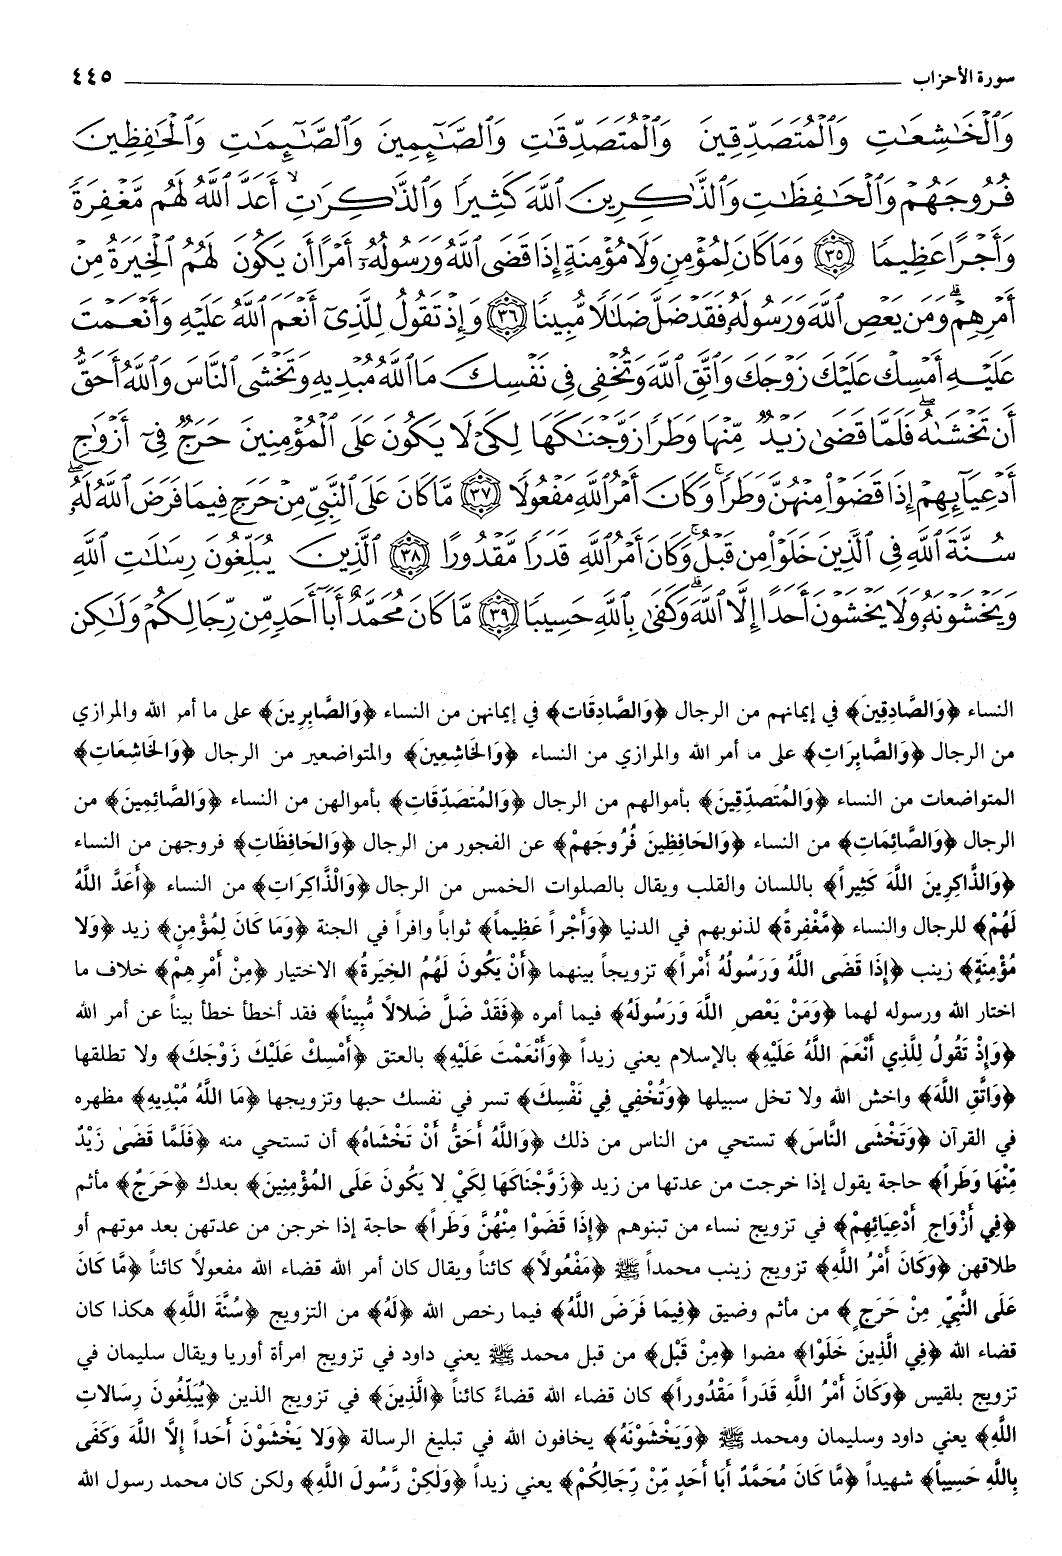 سورة الأحزاب ٤٤٥
وَٱلْخَٰشِعَٰتِ وَٱلْمُتَصَدِّقِينَ وَٱلْمُتَصَدِّقَٰتِ وَٱلصَّٰٓئِمِينَ وَٱلصَّٰٓئِمَٰتِ وَٱلْحَٰفِظِينَ
فُرُوجَهُمْ وَٱلْحَٰفِظَٰتِ وَٱلذَّٰكِرِينَ ٱللَّهَ كَثِيرًا وَٱلذَّٰكِرَٰتِ أَعَدَّ ٱللَّهُ لَهُم مَّغْفِرَةً
وَأَجْرًا عَظِيمًا ﴿٣٥﴾ وَمَا كَانَ لِمُؤْمِنٍ وَلَا مُؤْمِنَةٍ إِذَا قَضَى ٱللَّهُ وَرَسُولُهُۥٓ أَمْرًا أَن يَكُونَ لَهُمُ ٱلْخِيَرَةُ مِنْ
أَمْرِهِمْ ۗ وَمَن يَعْصِ ٱللَّهَ وَرَسُولَهُۥ فَقَدْ ضَلَّ ضَلَٰلًا مُّبِينًا ﴿٣٦﴾ وَإِذْ تَقُولُ لِلَّذِىٓ أَنْعَمَ ٱللَّهُ عَلَيْهِ وَأَنْعَمْتَ
عَلَيْهِ أَمْسِكْ عَلَيْكَ زَوْجَكَ وَٱتَّقِ ٱللَّهَ وَتُخْفِى فِى نَفْسِكَ مَا ٱللَّهُ مُبْدِيهِ وَتَخْشَى ٱلنَّاسَ وَٱللَّهُ أَحَقُّ
أَن تَخْشَىٰهُ ۖ فَلَمَّا قَضَىٰ زَيْدٌ مِّنْهَا وَطَرًا زَوَّجْنَٰكَهَا لِكَىْ لَا يَكُونَ عَلَى ٱلْمُؤْمِنِينَ حَرَجٌ فِىٓ أَزْوَٰجِ
أَدْعِيَآئِهِمْ إِذَا قَضَوْا۟ مِنْهُنَّ وَطَرًا ۚ وَكَانَ أَمْرُ ٱللَّهِ مَفْعُولًا ﴿٣٧﴾ مَّا كَانَ عَلَى ٱلنَّبِىِّ مِنْ حَرَجٍ فِيمَا فَرَضَ ٱللَّهُ لَهُۥ ۖ
سُنَّةَ ٱللَّهِ فِى ٱلَّذِينَ خَلَوْا۟ مِن قَبْلُ ۚ وَكَانَ أَمْرُ ٱللَّهِ قَدَرًا مَّقْدُورًا ﴿٣٨﴾ ٱلَّذِينَ يُبَلِّغُونَ رِسَٰلَٰتِ ٱللَّهِ
وَيَخْشَوْنَهُۥ وَلَا يَخْشَوْنَ أَحَدًا إِلَّا ٱللَّهَ ۗ وَكَفَىٰ بِٱللَّهِ حَسِيبًا ﴿٣٩﴾ مَّا كَانَ مُحَمَّدٌ أَبَآ أَحَدٍ مِّن رِّجَالِكُمْ وَلَٰكِن
النساء ﴿وَالصَّادِقِينَ﴾ في إيمانهم من الرجال ﴿وَالصَّادِقَات﴾ في إيمانهن من النساء ﴿وَالصَّابِرِينَ﴾ على ما أمر الله والمرازي
من الرجال ﴿وَالصَّابِرَاتِ﴾ على ما أمر الله والمرازي من النساء ﴿وَالخَاشِعِينَ﴾ والمتواضعير من الرجال ﴿وَالخَاشِعَاتِ﴾
المتواضعات من النساء ﴿وَالمُتَصدِّقِينَ﴾ بأموالهم من الرجال ﴿وَالمُتَصَدِّقَاتِ﴾ بأموالهن من النساء ﴿وَالصَّائِمِينَ﴾ من
الرجال ﴿وَالصَّائِمَاتِ﴾ من النساء ﴿وَالحَافِظِينَ فُرُوجَهُمْ﴾ عن الفجور من الرجال ﴿وَالحَافِظَاتِ﴾ فروجهن من النساء
﴿وَالذَّاكِرِينَ اللَّهَ كَثِيراً﴾ باللسان والقلب ويقال بالصلوات الخمس من الرجال ﴿وَالْذَّاكِرَاتِ﴾ من النساء ﴿أَعَدَّ اللَّهُ
لَهُمْ﴾ للرجال والنساء ﴿مَّغْفِرةً﴾ لذنوبهم في الدنيا ﴿وَأَجْراً عَظِيماً﴾ ثواباً وافراً في الجنة ﴿وَمَا كَانَ لِمُؤْمِنٍ﴾ زيد ﴿وَلا
مُؤْمِنَةٍ﴾ زينب ﴿إِذَا قَضَى اللَّهُ وَرَسُولُهُ أَمْراً﴾ تزويجاً بينهما ﴿أَنْ يَكُونَ لَهُمُ الخِيَرةُ﴾ الاختيار ﴿مِنْ أَمْرِهِمْ﴾ خلاف ما
اختار الله ورسوله لهما ﴿وَمَنْ يَعْصِ اللَّهَ وَرَسُولَهُ﴾ فيما أمره ﴿فَقَدْ ضَلَّ ضَلالاً مُّبِيناً﴾ فقد أخطأ خطأ بيناً عن أمر الله
﴿وَإِذْ تَقُولُ لِلَّذِي أَنْعَمَ اللَّهُ عَلَيْهِ﴾ بالإسلام يعني زيداً ﴿وَأَنْعَمْتَ عَلَيْهِ﴾ بالعتق ﴿أَمْسِكْ عَلَيْكَ زَوْجَكَ﴾ ولا تطلقها
﴿وَاتَّقِ اللَّهَ﴾ واخش الله ولا تخل سبيلها ﴿وَتُخْفِي فِي نَفْسِكَ﴾ تسر في نفسك حبها وتزويجها ﴿مَا اللَّهُ مُبْدِيهِ﴾ مظهره
في القرآن ﴿وَتَخْشَى النَّاسَ﴾ تستحي من الناس من ذلك ﴿وَاللَّهُ أَحَقُّ أَنْ تَخْشَاهُ﴾ أن تستحي منه ﴿فَلَمَّا قَضَىٰ زَيْدٌ
مِّنْهَا وَطَراً﴾ حاجة يقول إذا خرجت من عدتها من زيد ﴿زَوَّجْنَاكَهَا لِكَيْ لا يَكُونَ عَلَى المُؤْمِنِينَ﴾ بعدك ﴿حَرَجٌ﴾ مأثم
﴿فِي أَزْوَاجِ أَدْعِيَائِهِمْ﴾ في تزويج نساء من تبنوهم ﴿إِذَا قَضَوْا مِنْهُنَّ وَطَراً﴾ حاجة إذا خرجن من عدتهن بعد موتهم أو
طلاقهن ﴿وَكَانَ أَمْرُ اللَّهِ﴾ تزويج زينب محمداً ﷺ ﴿مَفْعُولاً﴾ كائناً ويقال كان أمر الله قضاء الله مفعولاً كائناً ﴿مَّا كَانَ
عَلَى النَّبِيِّ مِنْ حَرَجٍ﴾ من مأثم وضيق ﴿فِيمَا فَرَضَ اللَّهُ﴾ فيما رخص الله ﴿لَهُ﴾ من التزويج ﴿سُنَّةَ اللَّهِ﴾ هكذا كان
قضاء الله ﴿فِي الَّذِينَ خَلَوْا﴾ مضوا ﴿مِنْ قَبْل﴾ من قبل محمد ﷺ يعني داود في تزويج امرأة أوريا ويقال سليمان في
تزويج بلقيس ﴿وَكَانَ أَمْرُ اللَّهِ قَدَراً مَقْدُوراً﴾ كان قضاء الله قضاءً كائناً ﴿الَّذِينَ﴾ في تزويج الذين ﴿يُبَلِّغُونَ رِسَالاتِ
اللَّهِ﴾ يعني داود وسليمان ومحمد ﷺ ﴿وَيَخْشَوْنَهُ﴾ يخافون الله في تبليغ الرسالة ﴿وَلا يَخْشَوْنَ أَحَداً إِلَّا اللَّهَ وَكَفَى
بِاللَّهِ حَسِيباً﴾ شهيداً ﴿مَّا كَانَ مُحَمَّدٌ أَبا أَحَدٍ مِّنْ رِّجَالِكُمْ﴾ يعني زيداً ﴿وَلٰكِنْ رَّسُولَ اللَّهِ﴾ ولكن كان محمد رسول الله